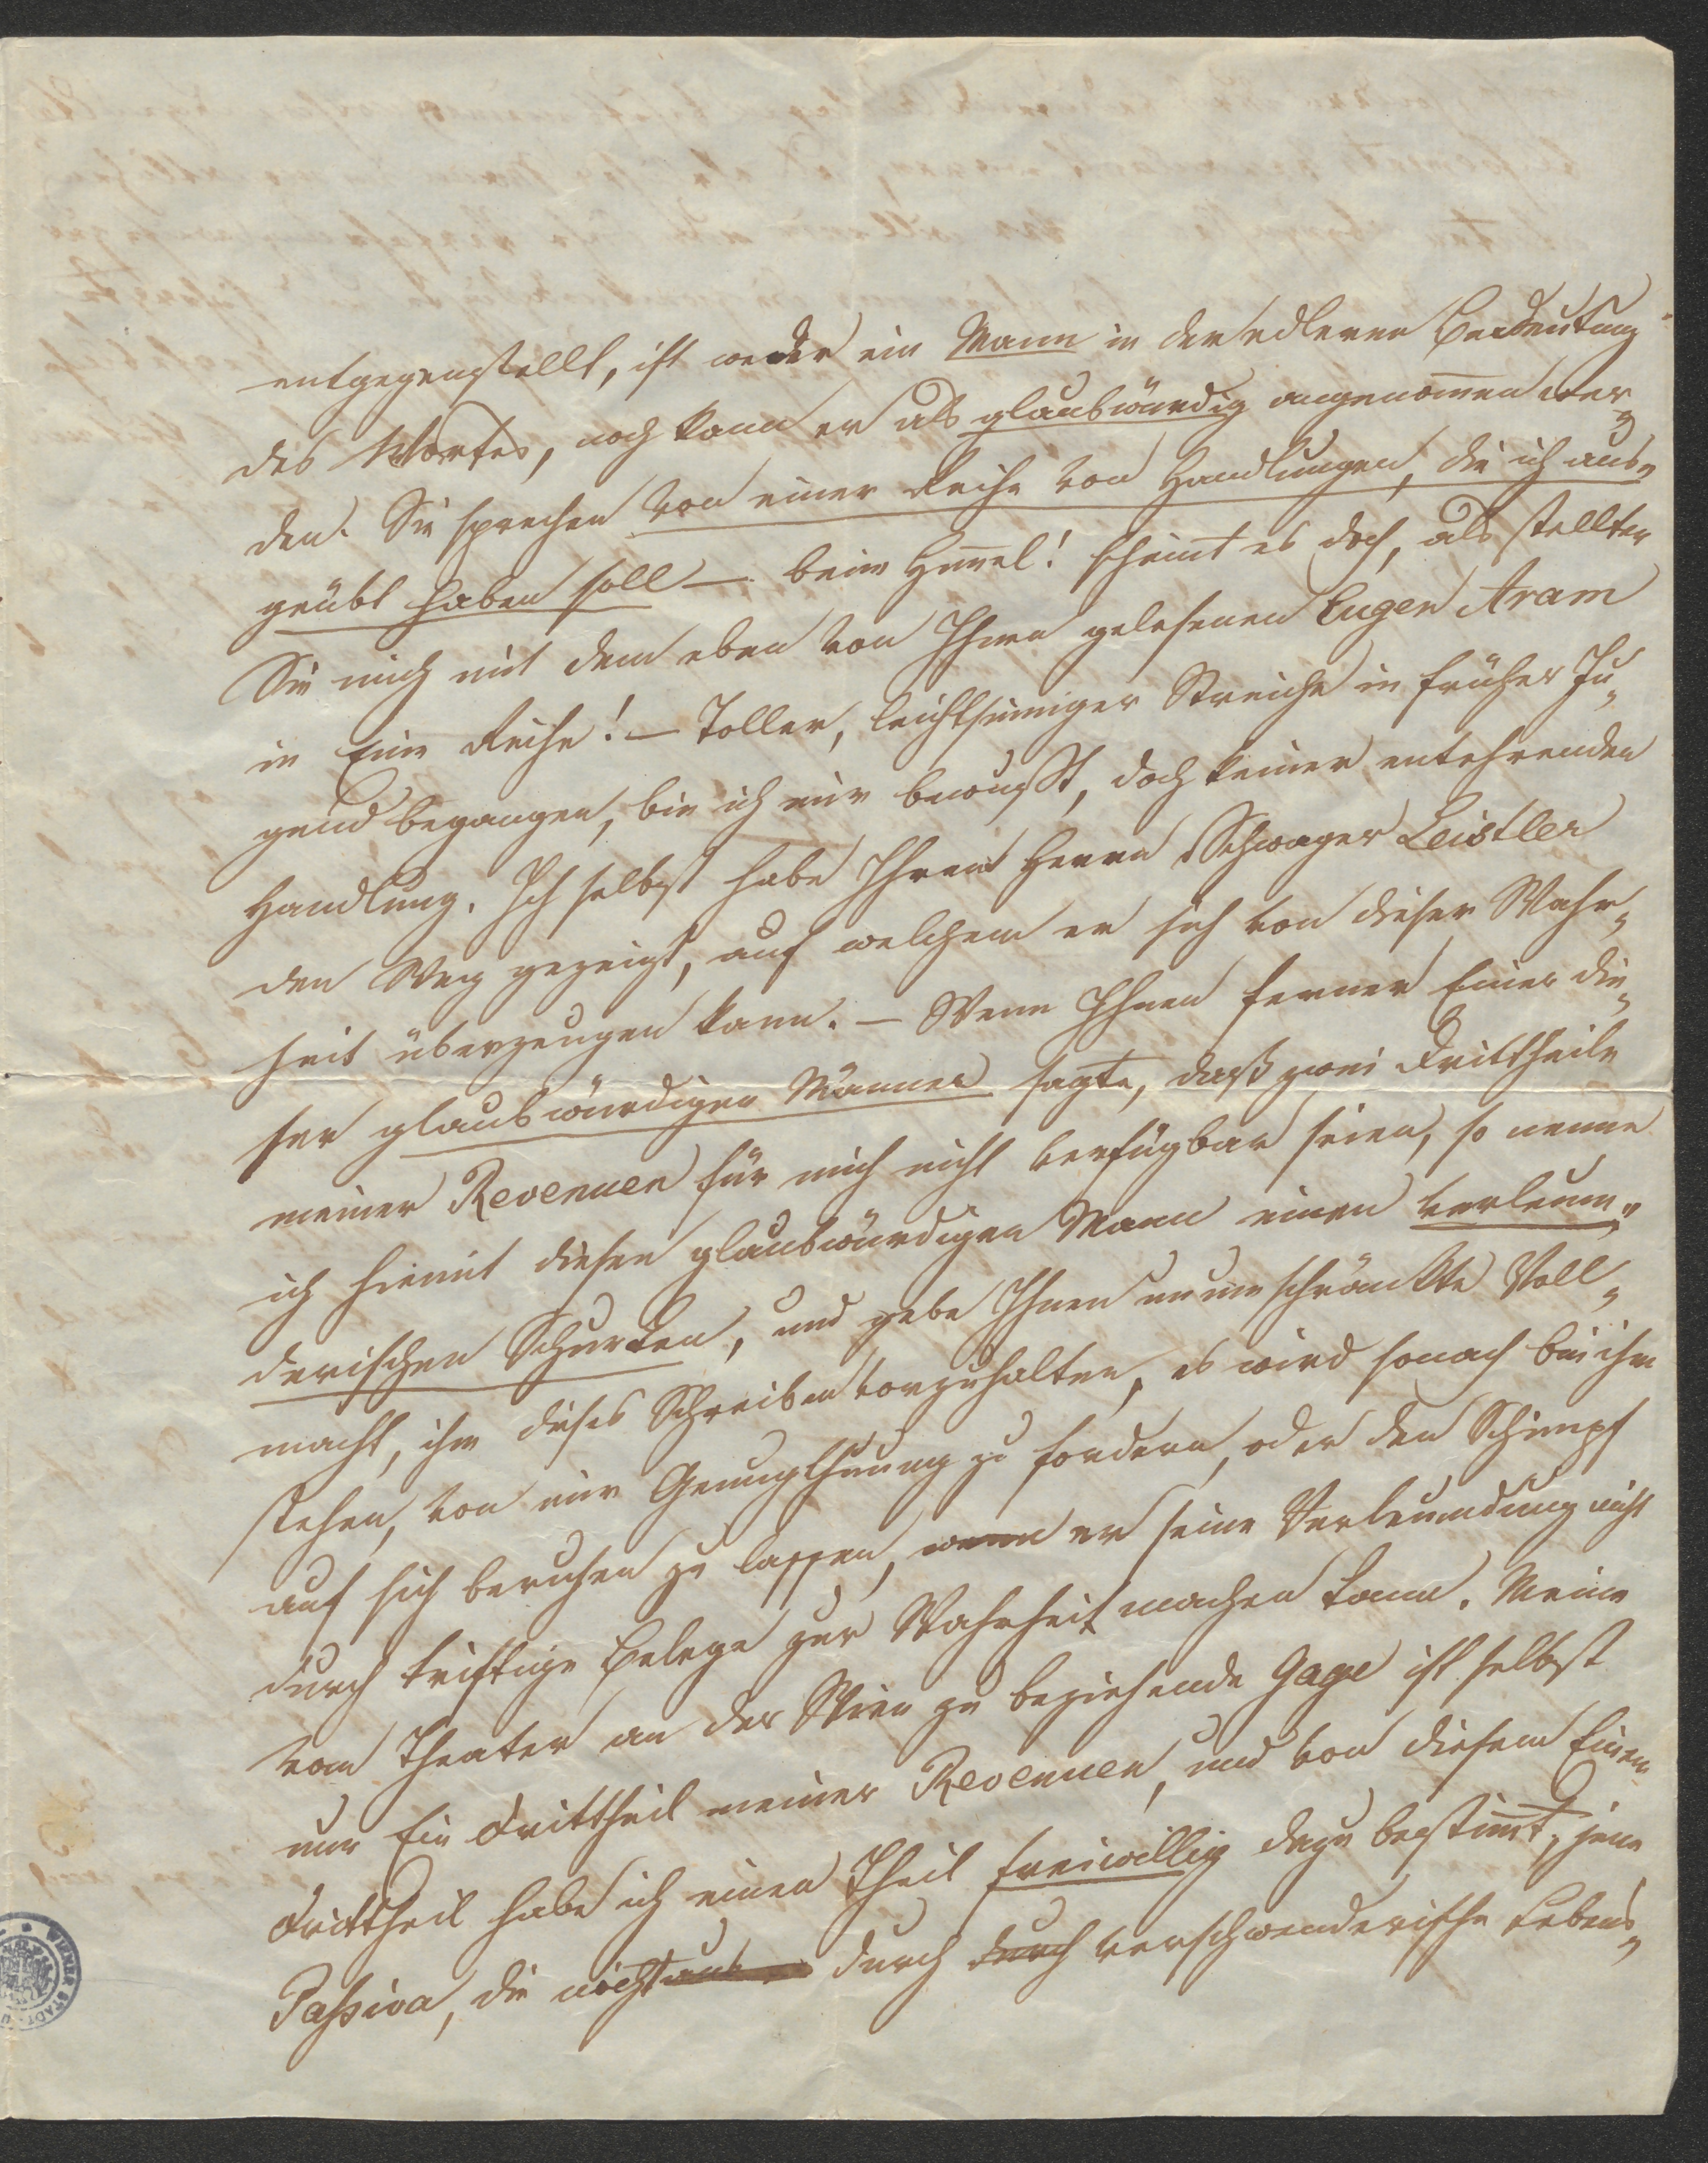 entgegenstellt, ist weder ein Mann in der edleren Bedeutung
des Wortes, noch kann er als glaubwürdig angenom̅en wer„
den. Sie sprechen von einer Reihe von Handlungen, die ich aus„
geübt haben soll – beim Him̅el! scheint es doch, als stellten
Sie mich mit dem eben von Ihnen gelesenen Eugen Aram
in Eine Reihe! – Toller, leichtsinniger Streiche in früher Ju„
gend begangen, bin ich mir bewußt, doch keiner entehrenden
Handlung. Ich selbst habe Ihrem Herrn Schwager Leistler
den Weg gezeigt, auf welchem er sich von dieser Wahr„
heit überzeugen kann. – Wenn Ihnen ferner Einer die„
ser glaubwürdigen Männer sagte, daß zwei Drittheile
meiner Revenuen für mich nicht verfügbar seien, so nenne
ich hiemit diesen glaubwürdigen Mann einen verleum„
derischen Schurken, und gebe Ihnen unumschränkte Voll„
macht, ihm dieses Schreiben vorzuhalten, es wird sonach bei ihm
stehen, von mir Genugthuung zu fordern, oder den Schimpf
auf sich beruhen zu lassen, wenn er seine Verleumdung nicht
durch triftige Belege zur Wahrheit machen kann. Meine
vom Theater an der Wien zu beziehende Gage ist selbst
nur Ein Drittheil meiner Revenuen, und von diesem Einen
Drittheil habe ich einen Theil freiwillig dazu bestim̅t, jene
Passiva, die nicht durch durch verschwenderische Lebens„
WIENER STADT